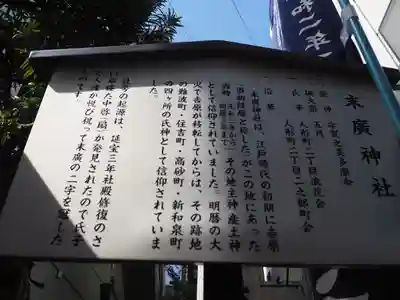 末廣神社
祭神 宇賀之美多摩命
例大祭 五月
氏子 人形町二丁目浪花会
人形町二丁目二の部町会
沿革
末廣神社は、江戸時代の初期に吉原
がこの地にあった
その地主神産土神
として信仰されていました。明暦の大
火で吉原が移転してからは、その跡地
の難波町・住吉町・高砂町・新和泉町
の四ヶ所の氏神として信仰されていま
した。
社号の起源は、延宝三年社殿修復のさ
い年経た中啓(扇)が発見されたので氏子
の人達が悦び祝って末廣の二字を冠した
ものです。